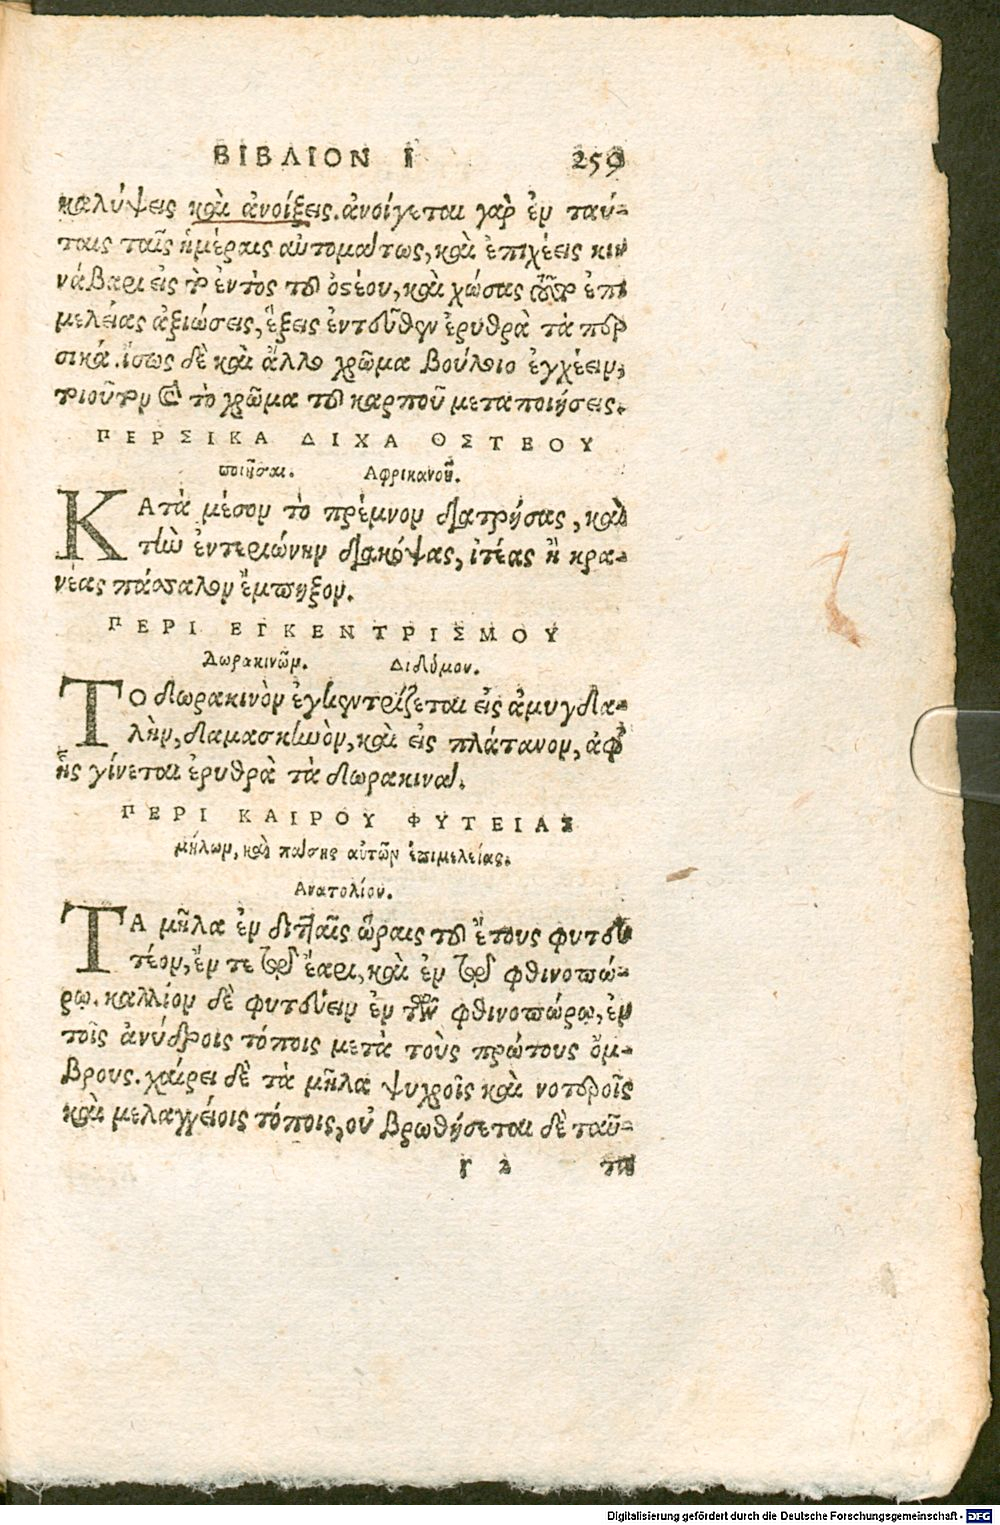 ΒΙΒΛΙΟΝ Ι 259
καλύψεις καὶ ἀνοίξεις. ἀνοίγεται γὰρ ἐν ταύ-
ταις ταῖς ἡμέραις αὐτομάτως, καὶ ἐπιχέεις κιν
νάβαρι εἰς τὸ ἐντὸς τοῦ ὀστέου, καὶ χώσας ἐπι
μελείας ἀξιώσεις, ἕξεις ἐντεῦθεν ἐρυθρὰ τὰ περ
σικά. ἴσως δὲ καὶ ἄλλο χρῶμα βούλοιο ἐγχέειν,
τοιοῦτον καὶ τὸ χρῶμα τοῦ καρποῦ μεταποιήσεις.
ΠΕΡΣΙΚΑ ΔΙΧΑ ΟΣΤΕΟΥ
ποιῆσαι. Αφρικανοῦ.
ΚΑτὰ μέσον τὸ πρέμνον διατρήσας, καὶ
τὴν ἐντεριώνην διακόψας, ἰτέας ἢ κρα-
νέας πάσσαλον ἔμπηξον.
ΠΕΡΙ ΕΓΚΕΝΤΡΙΣΜΟΥ
Δωρακινῶν. Διδύμου.
ΤΟ δωρακινὸν ἐγκεντρίζεται εἰς ἀμυγδα-
λὴν, δαμασκηνὸν, καὶ εἰς πλάτανον, ἀφ᾽
ἧς γίνεται ἐρυθρὰ τὰ δωρακινά.
ΠΕΡΙ ΚΑΙΡΟΥ ΦΥΤΕΙΑΣ
μήλων, καὶ πάσης αὐτῶν ἐπιμελείας.
Ανατολίου.
ΤΑ μῆλα ἐν διτταῖς ὥραις τοῦ ἔτους φυτευ
τέον, ἔν τε τῷ ἔαρι, καὶ ἐν τῷ φθινοπώ-
ρῳ. κάλλιον δὲ φυτεύειν ἐν τῷ φθινοπώρῳ, ἐν
τοῖς ἀνύδροις τόποις μετὰ τοὺς πρώτους ὄμ-
βρους. χαίρει δὲ τὰ μῆλα ψυχροῖς καὶ νοτεροῖς
καὶ μελαγγείοις τόποις, οὐ βρωθήσεται δὲ ταῦ-
r 2 τα
Digitalisierung gefördert durch die Deutsche Forschungsgemeinschaft - DFG